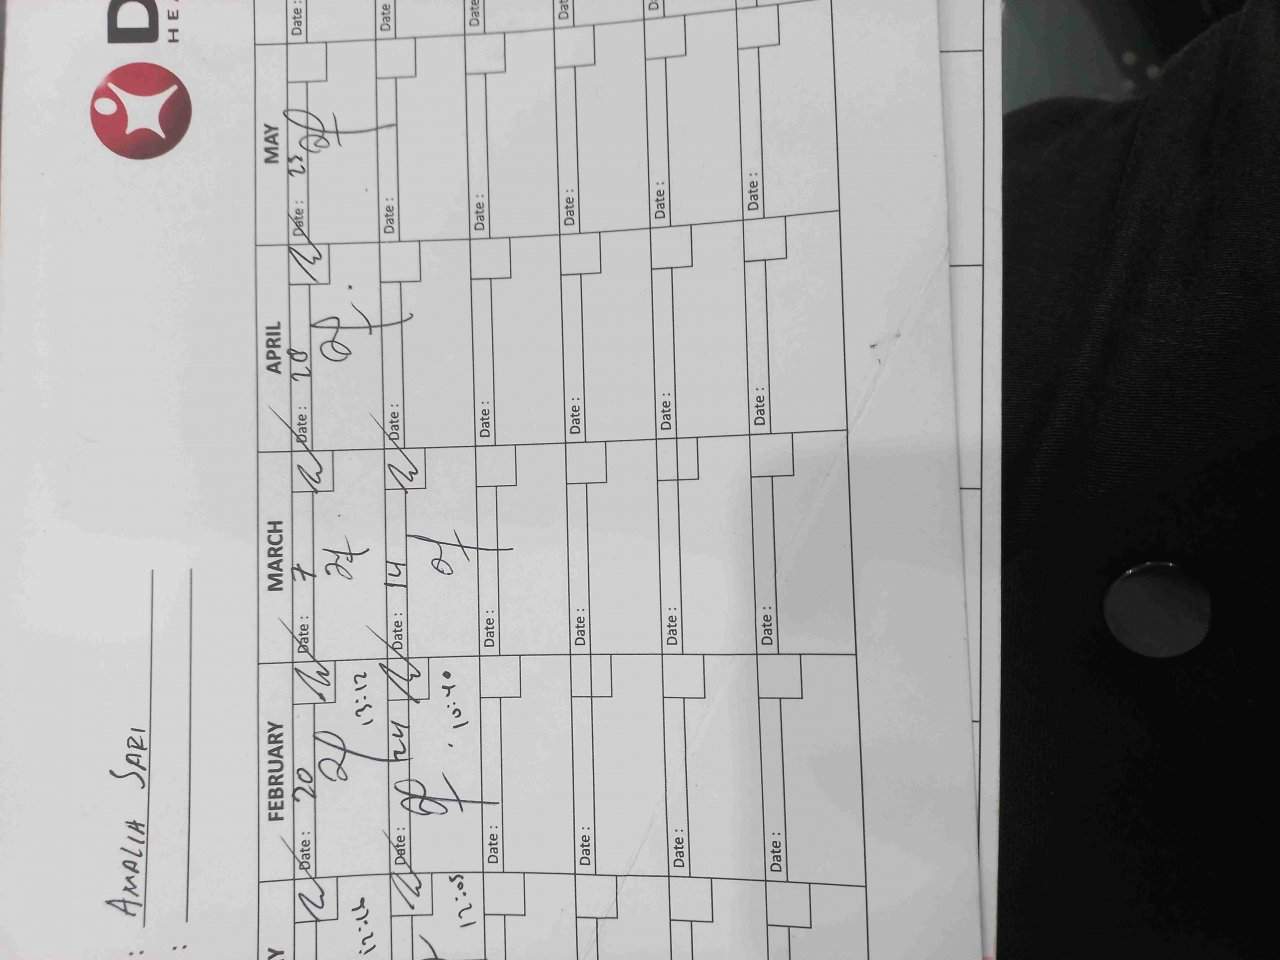 : AMALIA SARI
:
D
HEA
Y FEBRUARY MARCH APRIL MAY
Date : 20 Date : 7 Date : Date : 23 Date :
13:12
Date : 24 Date : 14 Date : Date : Date
12:05 10:40
Date : Date : Date : Date : Date
Date : Date : Date : Date : Dat
Date : Date : Date : Date : D
Date : Date : Date : Date :